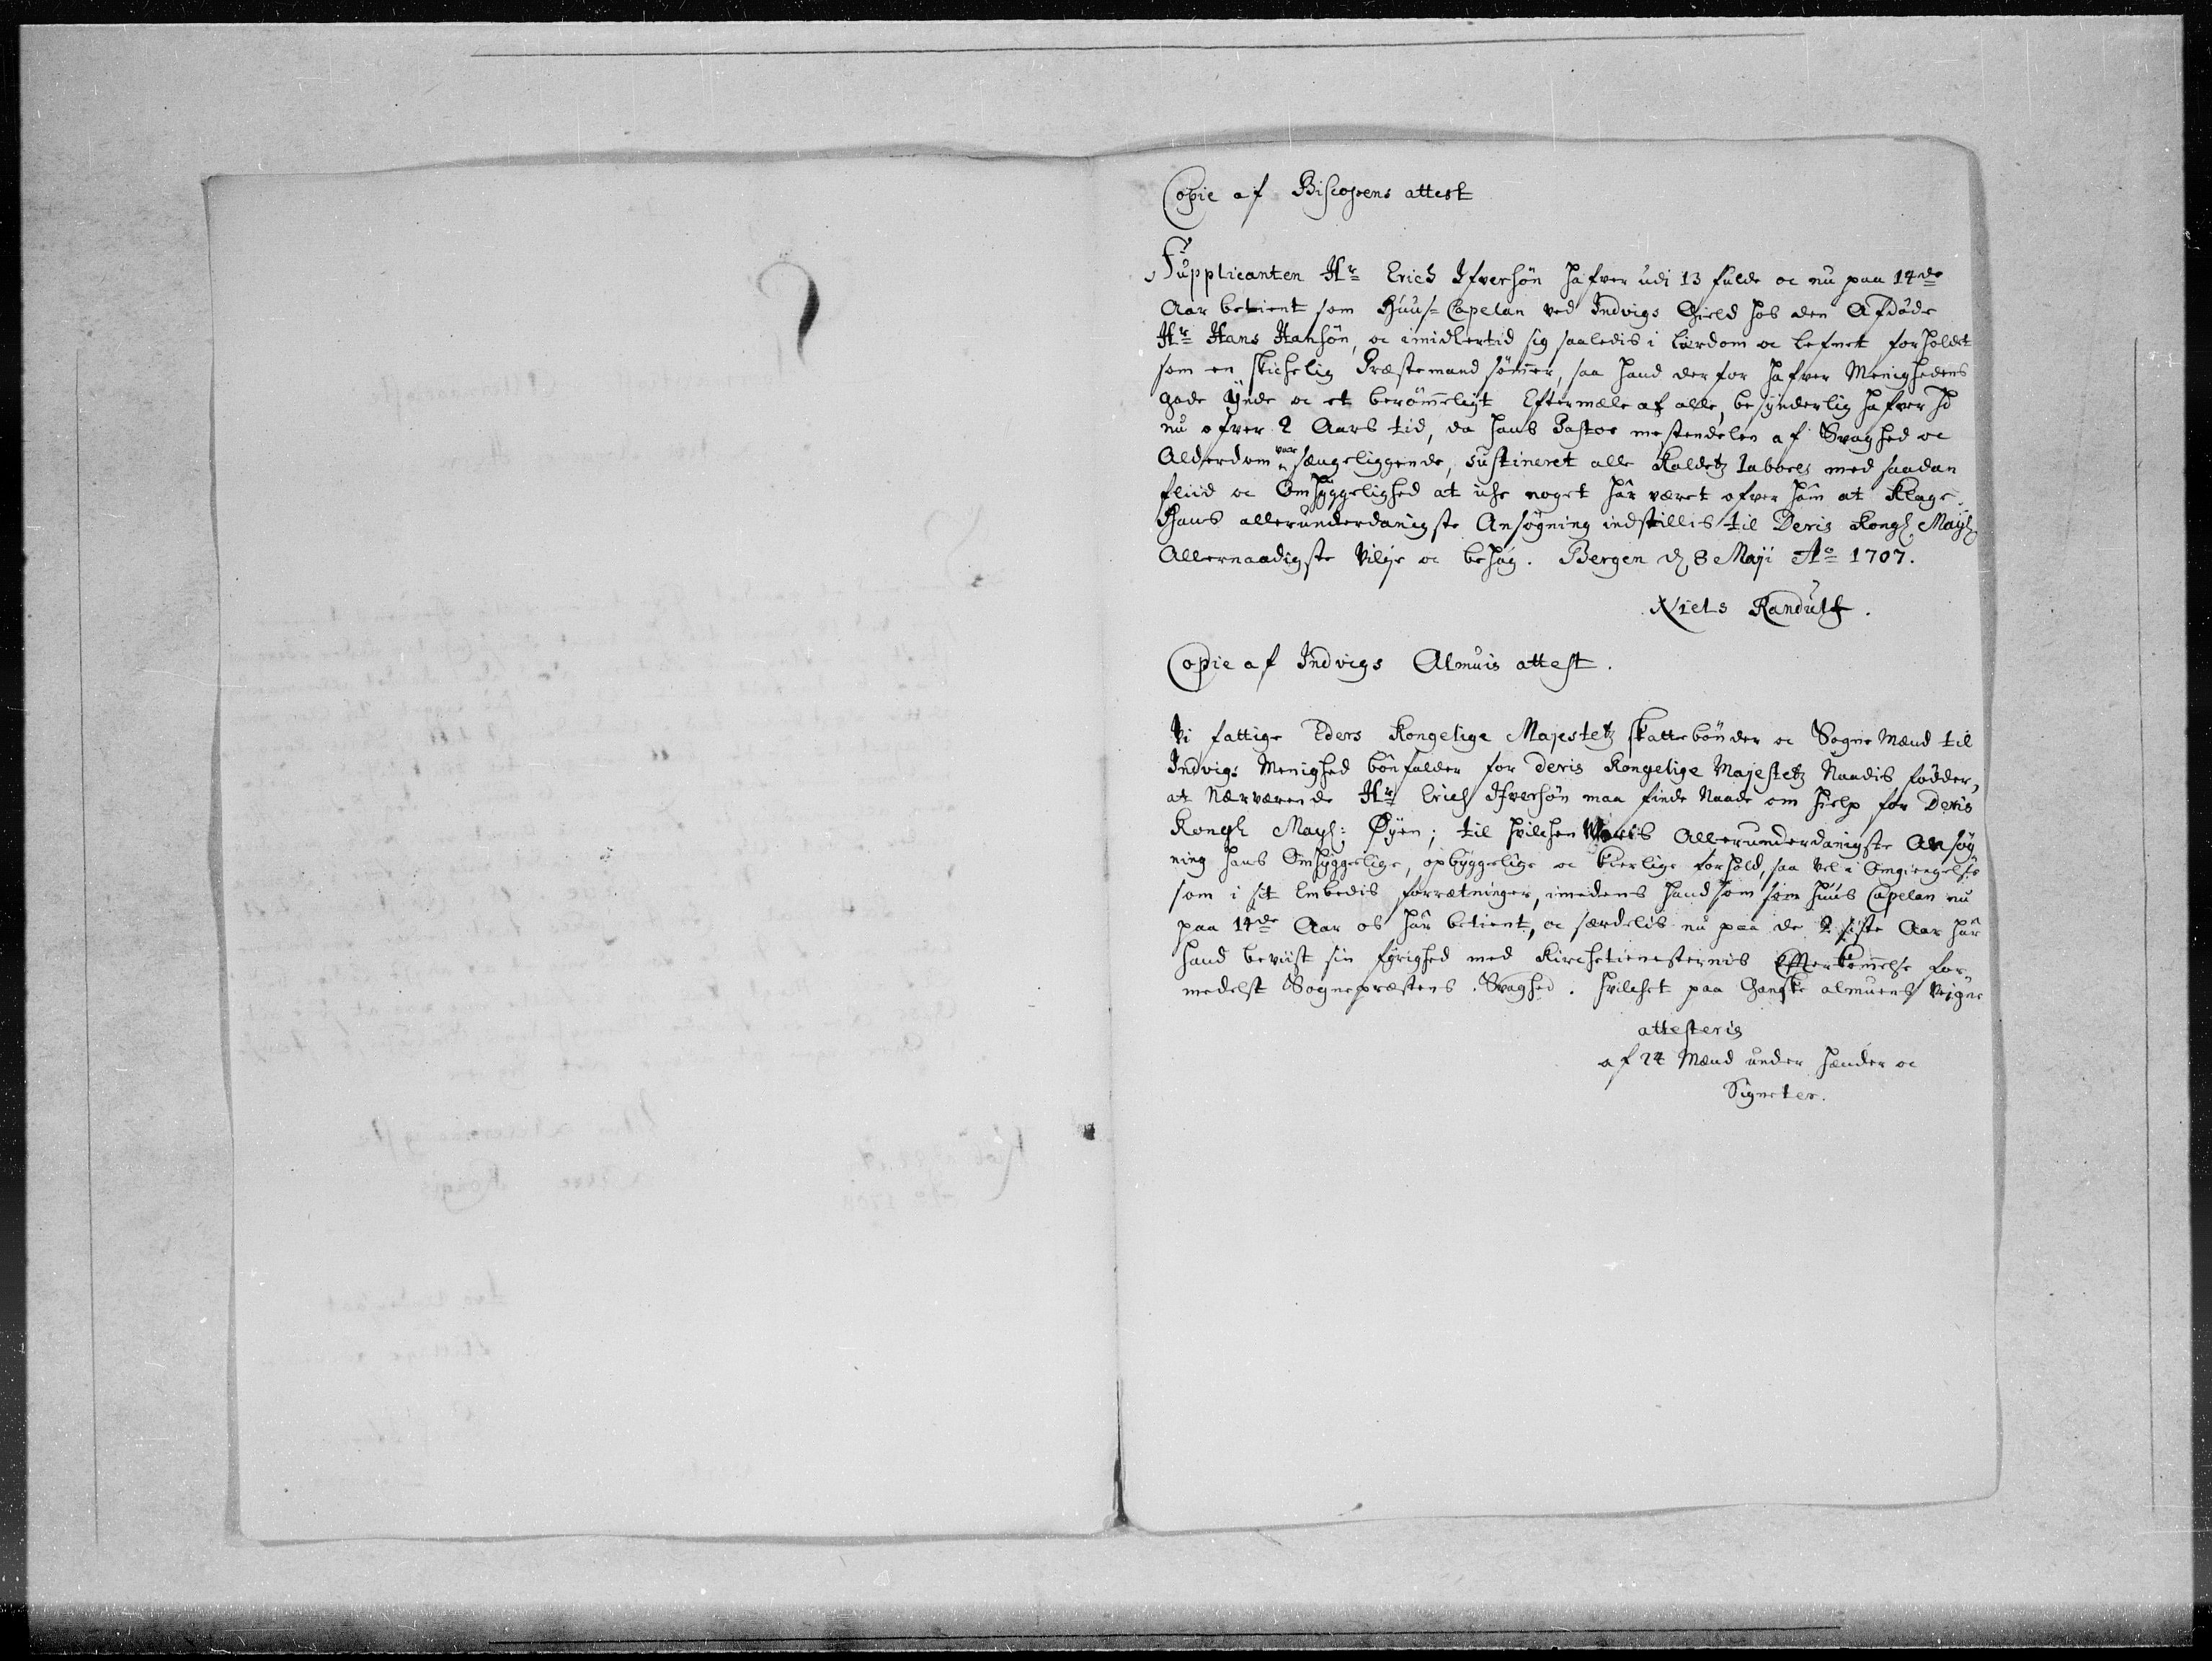 Copie af Biscopens attest
Supplicanten Hr Erich Ifversøn hafver udi 13 fulde oc nu paa 14de
Aar betient som Huus-Capelan ved Indvigs Gield hos den Afdøde
Hr Hans Hansøn, oc imidlertid sig saaledis i lærdom oc lefnet forholdt
som en skichelig Præstemand sømmer, saa hand derfor hafver Menighedens
gode Ynde oc et berømmeligt Eftermæle af alle, besynderlig hafver hd
nu ofver 2 Aars tid, da hans Pastor mestendelen af Svaghed oc
Alderdom var sængeliggende, sustineret alle Kaldetz labores med saadan
fliid oc Omhyggelighed at iche noget har været ofver ham at Klage.
Hans allerunderdanigste Ansøgning indstillis til Deris Kongl. Mayt
Allernaadigste Vilje oc behag. Bergen d. 8 Maji Ao 1707.
Niels Randulf.
Copie af Indvigs Almuis attest.
Vi fattige Eders Kongelige Majestetz skattebønder oc Sogne Mænd til
Indvigs Menighed bønfalder for deris Kongelige Majestetz Naadis fødder,
at Nærværende Hr Erich Ifversøn maa finde Naade om hielp for Deris
Kongl Mayt: Øyen; til hvilchen Allerunderdanigste Ansøg
ning hans Omhyggelige, opbyggelige oc kierlige forhold, saa vel i Omgiengelse
som i sit Embedis forrætninger, imedens hand som huus Capelan nu
paa 14de Aar os har betient, oc særdelis nu paa de 2 siste Aar har
hand beviist sin fyrighed med Kirchetienisternis Efterkommelse for-
medelst Sognepræstens Svaghed. hvilchet paa Gansche almuens Vegne
attesteris
af 24 Mænd under hænder oc
Signeter.